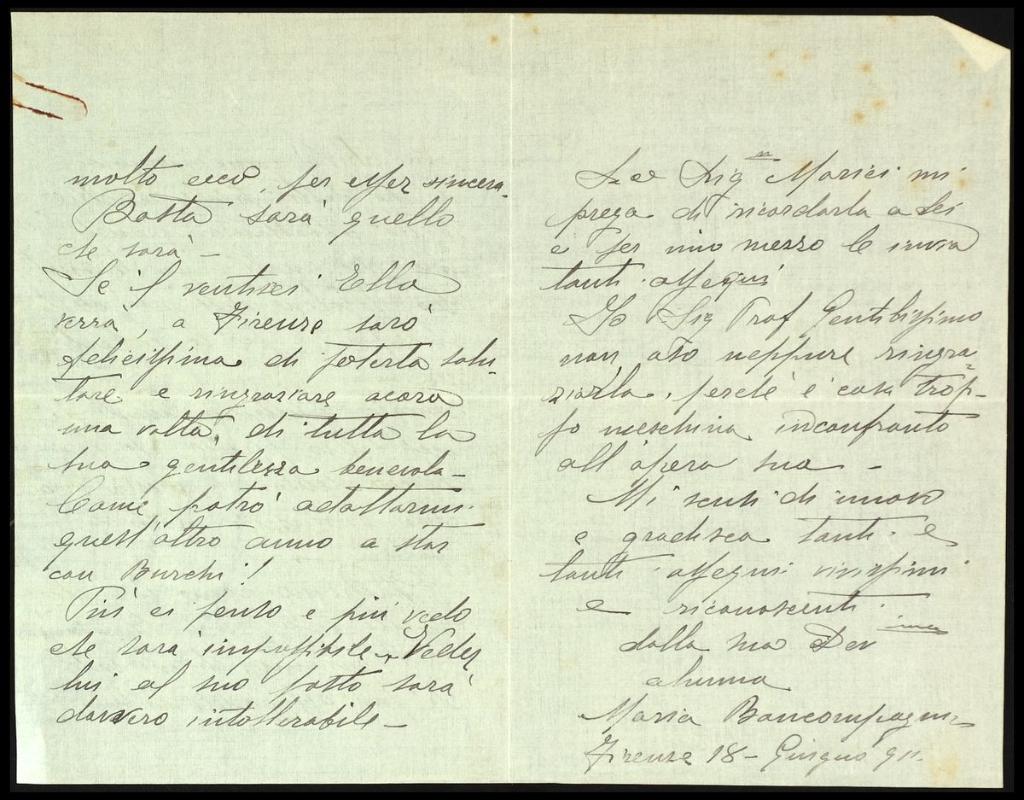 molto ecco, per esser sincera.
Basta sarà quello
che sarà —
Se il ventisei Ella
verrà, a Firenze sarò
felicissima di poterla salu-
tare e ringraziare acora
una volta, di tutta la
sua gentilezza benevola —
Come potrò adattarmi
quest'altro anno a star
con Burchi!
Più ci penso e più vedo
che sarà impossibile — Veder
lui al suo posto sarà
davvero intollerabile —
La Sigⁿᵃ Marici mi
prega di ricordarla a Lei
e per mio mezzo le invia
tanti ossequi
Io Sig Prof Gentilissimo
non oso neppure ringra-
ziarla, perchè è cosa trop-
po meschina inconfronto
all'opera sua —
Mi scusi di nuovo
e gradisca tanti e
tanti ossequi vivissimi
e riconoscenti
dalla sua Devᵐᵃ
alunna
Maria Boncompagni
Firenze 18 — Giugno 911.